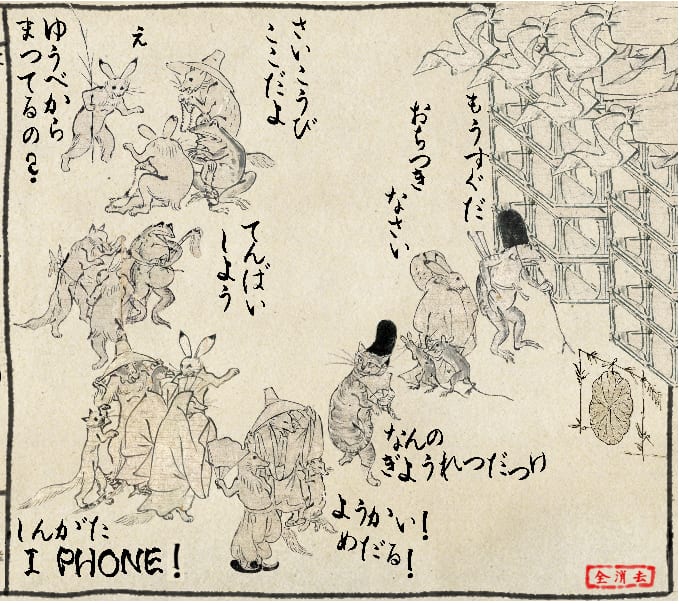 もうすぐだ
おちつき
なさい
さいこうび
ここだよ
え
ゆうべから
まつてるの?
てんばい
しよう
なんの
ぎようれつだつけ
ようかい!
めだる!
しんがた
I PHONE!
全消去